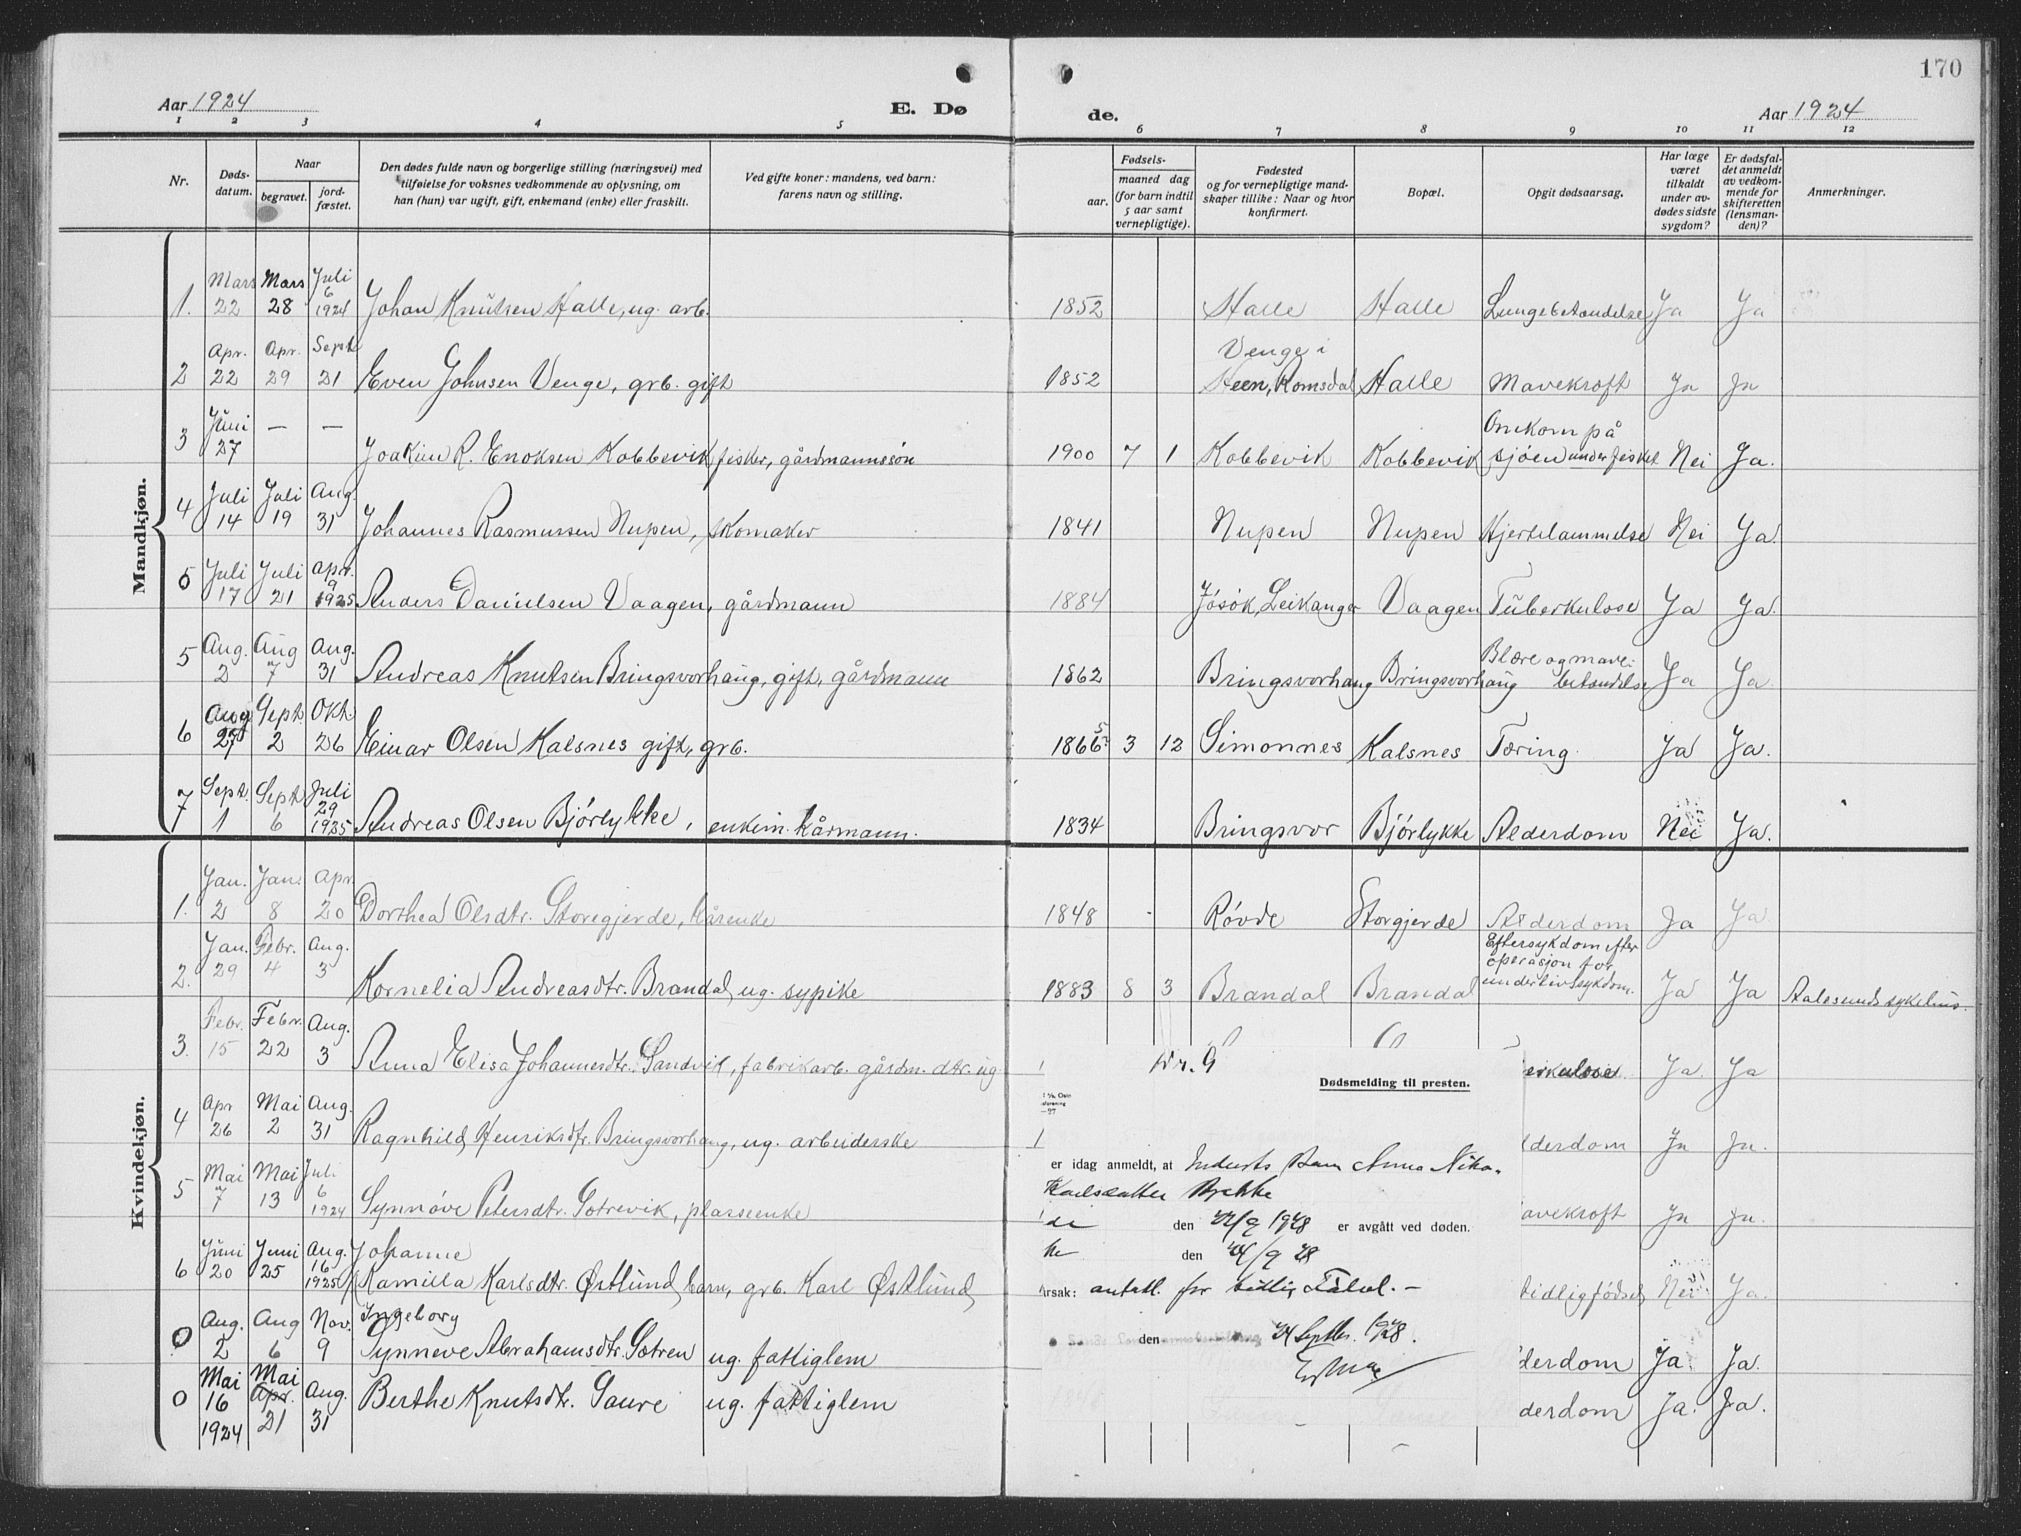 170
Aar 1924
E. Dø
de.
Aar 1924
1 2 3 4 5
6 7 8 9 10 11 12
Nr.
Døds-
datum.
Naar
begravet.
jord-
fæstet.
Den dødes fulde navn og borgerlige stilling (næringsvei) med
tilføielse for voksnes vedkommende av oplysning, om
han (hun) var ugift, gift, enkemand (enke) eller fraskilt.
Ved gifte koner: mandens, ved barn:
farens navn og stilling.
Fødsels-
aar.
maaned dag
(for barn indtil
5 aar samt
vernepligtige).
Fødested
og for vernepligtige mand-
skaper tillike: Naar og hvor
konfirmert.
Bopæl.
Opgit dødsaarsag.
Har læge
været
tilkaldt
under av-
dødes sidste
sygdom?
Er dødsfal-
det anmeldt
av vedkom-
mende for
skifteretten
(lensman-
den)?
Anmerkninger.
Mandkjøn.
Mars Mars Juli
6
1. 22 28 1924 Johan Knutsen Halle, ug. arb. 1852 Halle Halle Lungebetændelse Ja Ja
Apr. Apr. Sept. Venge i
2 22 29 21 Even Johnsen Venge, grb. gift 1852 Heen, Romsdal Halle Mavekræft Ja Ja
Juni Omkom på
3 27 — — Joakim R. Enoksen Kobbevik fisker, gårdmannssøn 1900 7 1 Kobbevik Kobbevik sjøen under fisket Nei Ja.
Juli Juli Aug.
4 14 19 31 Johannes Rasmussen Nupen, skomaker 1841 Nupen Nupen Hjertelammelse Nei Ja.
Juli Juli apr.
9
5 17 21 1925 Anders Danielsen Vaagen, gårdmann 1884 Jøsøk, Leikanger Vaagen Tuberkulose Ja Ja.
Aug. Aug Aug. Blære og mave-
5 2 7 31 Andreas Knutsen Bringsvorhaug, gift, gårdmann 1862 Bringsvorhaug Bringsvorhaug betændelse Ja Ja.
Aug Sept. Okt. 5
6 27 2 26 Einar Olsen Kalsnes gift, grb. 1866 3 12 Simonnes Kalsnes Tæring. Ja Ja.
Sept. Sept. Juli
29
7 1 6 1925 Andreas Olsen Bjørlykke, enkem. kårmann. 1834 Bringsvor Bjørlykke Alderdom Nei Ja.
Kvindekjøn.
Jan. Jan. Apr.
1. 2 8 20 Dorthea Olsdtr. Storegjerde, kårenke 1848 Røvde Storgjerde Alderdom Ja Ja
Jan. Febr. Aug. Eftersykdom efter
operasjon for
2. 29 4 3 Kornelia Andreasdtr. Brandal, ug. sypike 1883 8 3 Brandal Brandal underlivssykdom. Ja Ja Aalesunds sykehus.
Febr. Febr. Aug.
3. 15 22 3 Anna Elisa Johannesdtr. Sandvik, fabrikarb. gårdm. dtr. ug erkulose. Ja. Ja
Apr Mai Aug.
4 26 2 31 Ragnhild Henriksdtr. Bringsvorhaug, ug. arbeiderske lderdom Ja Ja.
Mai Mai Juli
6
5 7 13 1924 Synnøve Petersdtr. Sætrevik, plasseenke avekræft Ja Ja.
Juni Juni Aug. Johanne
16
6 20 25 1925 Kamilla Karlsdtr. Østlund, barn, grb. Karl Østlund, tidlig fødsel Nei Ja.
Aug. Aug Nov. Ingeborg
0 2 6 9 Synneve Abrahamsdtr. Sætren ug. fattiglem derdom Ja. Ja.
Mai Mai
Apr. Aug.
0 16 21 31 Berthe Knutsdtr. Saure ug. fattiglem derdom Ja. Ja.
1924
Nr. 9
Dødsmelding til presten.
er idag anmeldt, at Anna
Karlsdatter Brekke
den 22/9 1948 er avgått ved døden.
den 24/9 48
rsak: antatt. for tidlig Fødsel. —
den 24 Septbr. 1948.